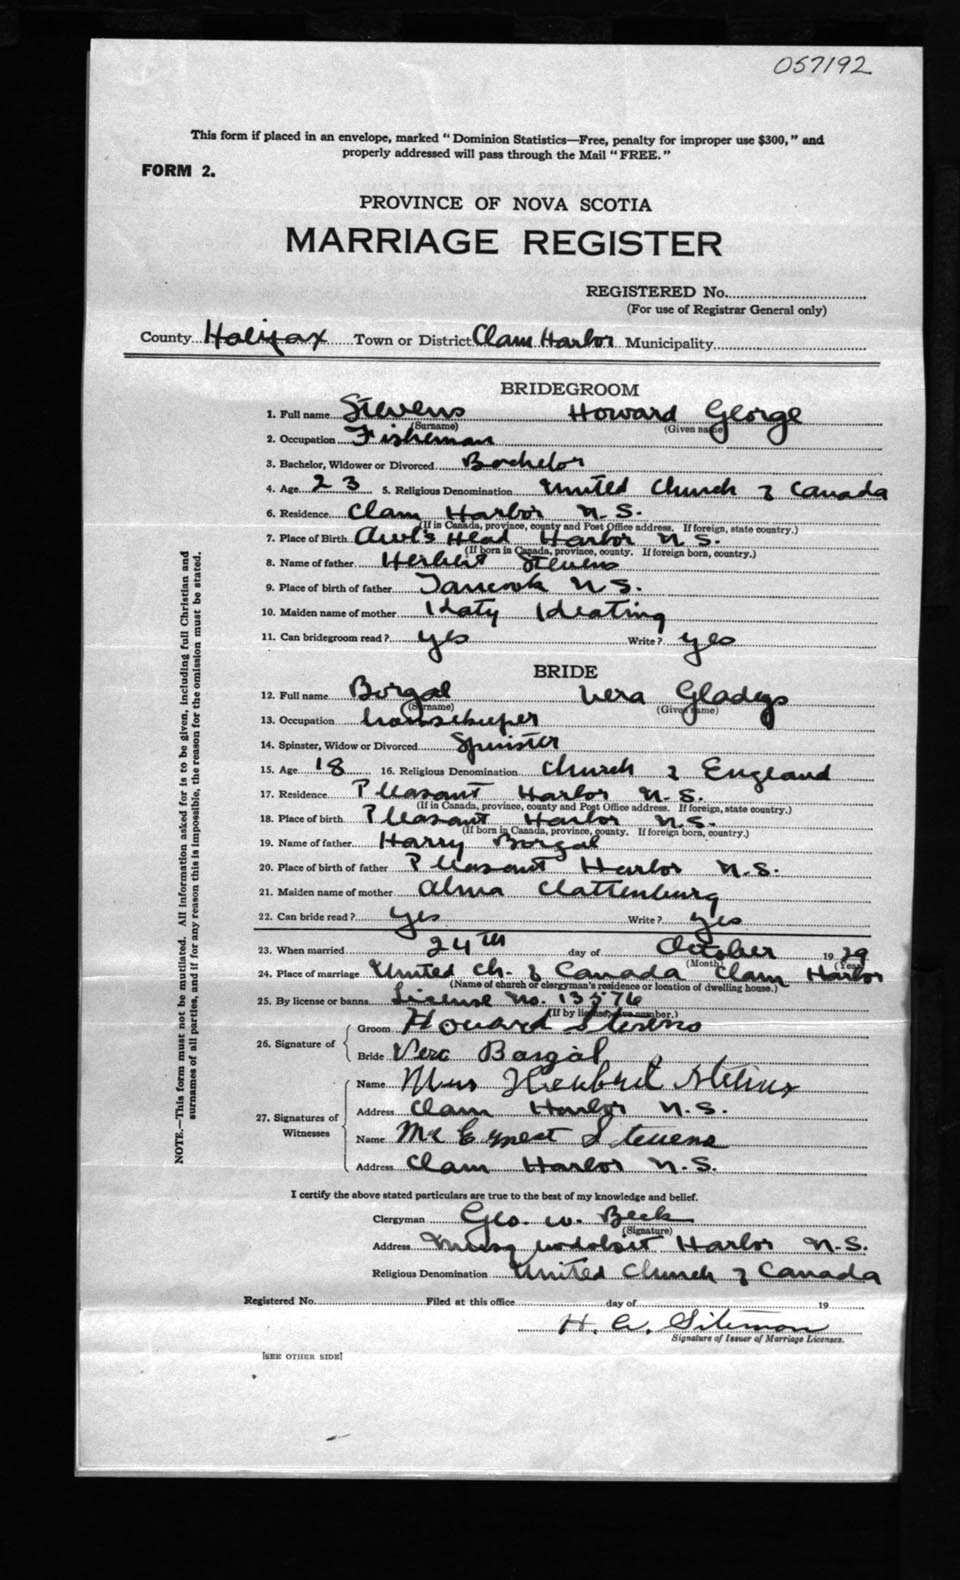 057192
This form if placed in an envelope, marked "Dominion Statistics—Free, penalty for improper use $300," and
properly addressed will pass through the Mail "FREE."
FORM 2.
PROVINCE OF NOVA SCOTIA
MARRIAGE REGISTER
REGISTERED No.
(For use of Registrar General only)
County Halifax Town or District Clam Harbor Municipality
BRIDEGROOM
1. Full name Stevens Howard George
(Surname) (Given name)
2. Occupation Fisherman
3. Bachelor, Widower or Divorced Bachelor
4. Age 23 5. Religious Denomination United Church of Canada
6. Residence Clam Harbor N.S.
(If in Canada, province, county and Post Office address. If foreign, state country.)
7. Place of Birth Owl's Head Harbor N.S.
(If born in Canada, province, county. If foreign born, country.)
8. Name of father Herbert Stevens
9. Place of birth of father Tancook N.S.
10. Maiden name of mother Katy Keating
11. Can bridegroom read? yes Write? yes
BRIDE
12. Full name Borgal Vera Gladys
(Surname) (Given name)
13. Occupation housekeeper
14. Spinster, Widow or Divorced Spinster
15. Age 18 16. Religious Denomination Church of England
17. Residence Pleasant Harbor N.S.
(If in Canada, province, county and Post Office address. If foreign, state country.)
18. Place of birth Pleasant Harbor N.S.
(If born in Canada, province, county. If foreign born, country.)
19. Name of father Harry Borgal
20. Place of birth of father Pleasant Harbor N.S.
21. Maiden name of mother Alma Clattenburg
22. Can bride read? yes Write? yes
23. When married 24th day of October 1929
(Month) (Year)
24. Place of marriage United Ch. of Canada Clam Harbor
(Name of church or clergyman's residence or location of dwelling house.)
25. By license or banns License No. 13576
(If by license, give number.)
26. Signature of
Groom Howard Stevens
Bride Vera Borgal
27. Signatures of Witnesses
Name Mrs Herbert Stevens
Address Clam Harbor N.S.
Name Mr Ernest Stevens
Address Clam Harbor N.S.
I certify the above stated particulars are true to the best of my knowledge and belief.
Clergyman Geo. W. Beck
(Signature)
Address Musquodoboit Harbor N.S.
Religious Denomination United Church of Canada
Registered No. Filed at this office day of 19
H. A. Siteman
Signature of Issuer of Marriage Licenses.
[SEE OTHER SIDE]
NOTE.—This form must not be mutilated. All information asked for is to be given, including full Christian and
surnames of all parties, and if for any reason this is impossible, the reason for the omission must be stated.